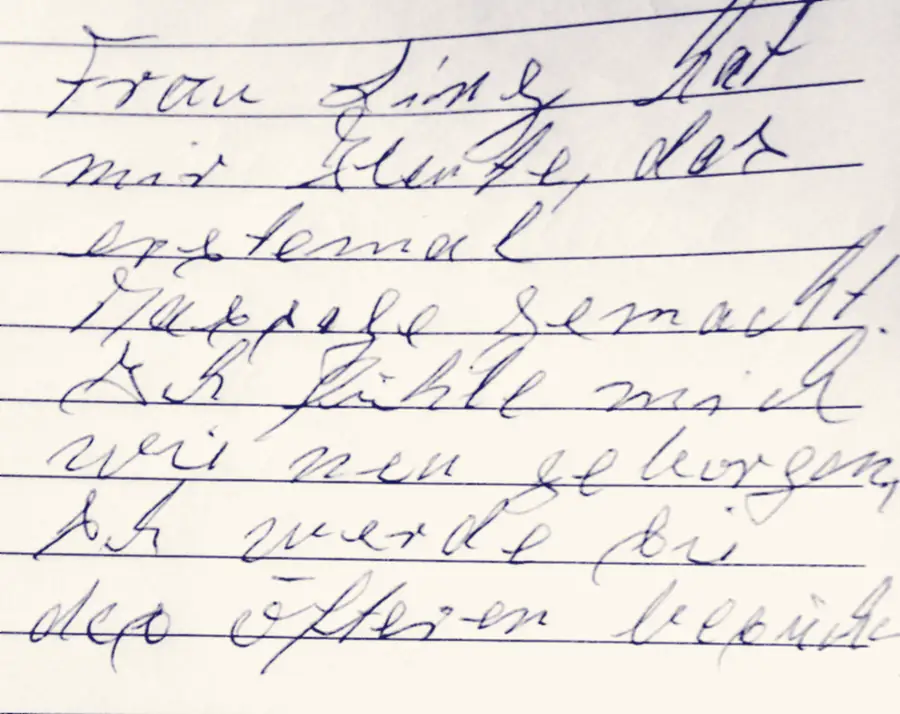 Frau Ling hat
mir Heute, das
erstemal
Massage gemacht.
Ich fühle mich
wie neu geborgen,
Ich werde sie
des öfteren besuche